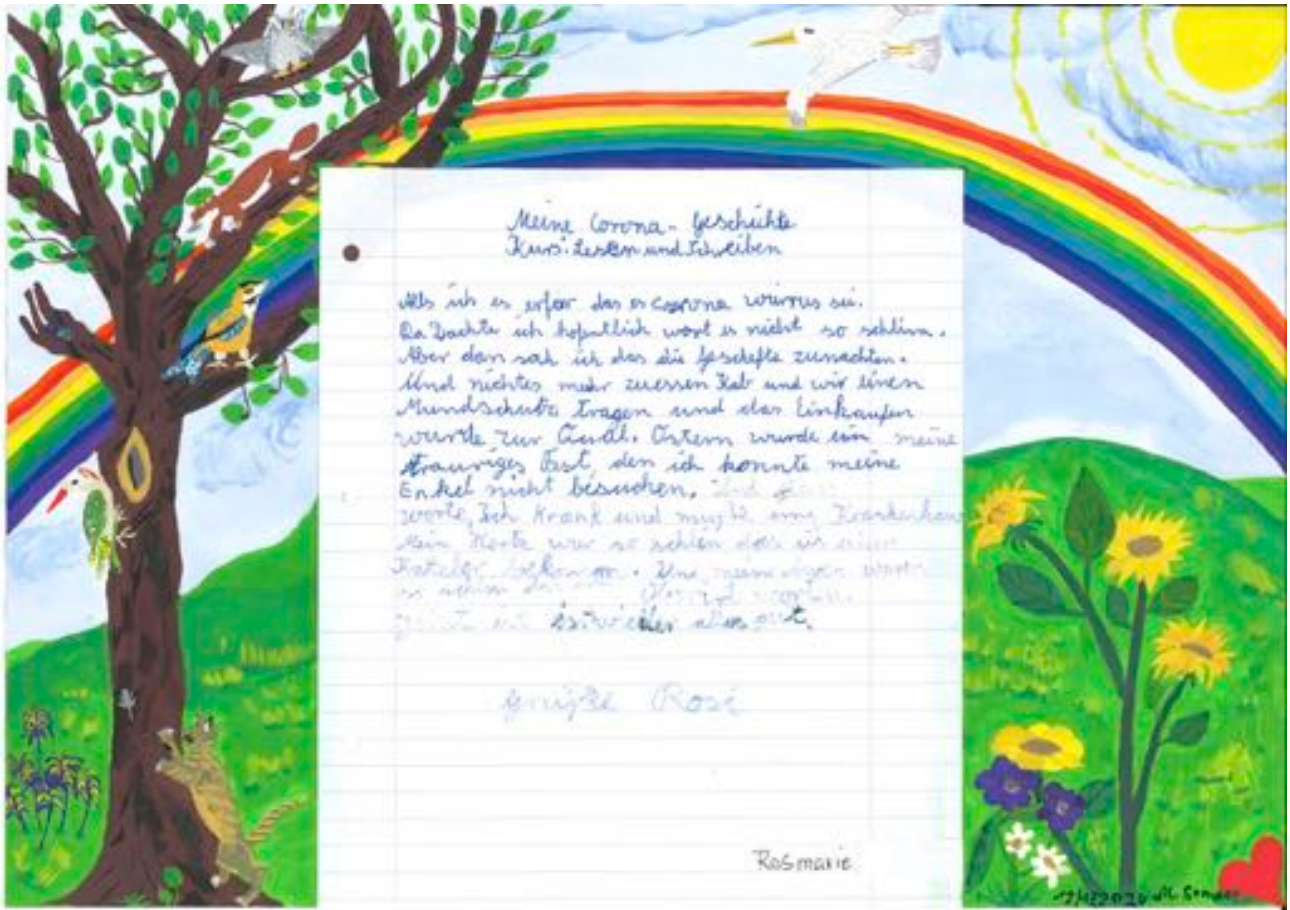 Meine Corona-Geschichte
Kurs: Lesen und Schreiben
Als ich es erfar das es corona wurrus sei.
Da Dachte ich hofentlich wört es nicht so schlim.
Aber dan sah ich das die Geschefte zumachten.
Und nichtes mehr zuessen Kab und wir einen
Mundschutz tragen und das Einkaufen
wurde zur Qual. Ostern wurde ein meine
trauriges Fast, den ich konnte meine
Enkel nicht besuchen. Und
Ich Krank und mußte ins Krankenhaus
Mein war so schlen das ich einen
Kateter bekommen. Und meine
ist wieder alles gut.
Grüße Rosi
Rosmarie